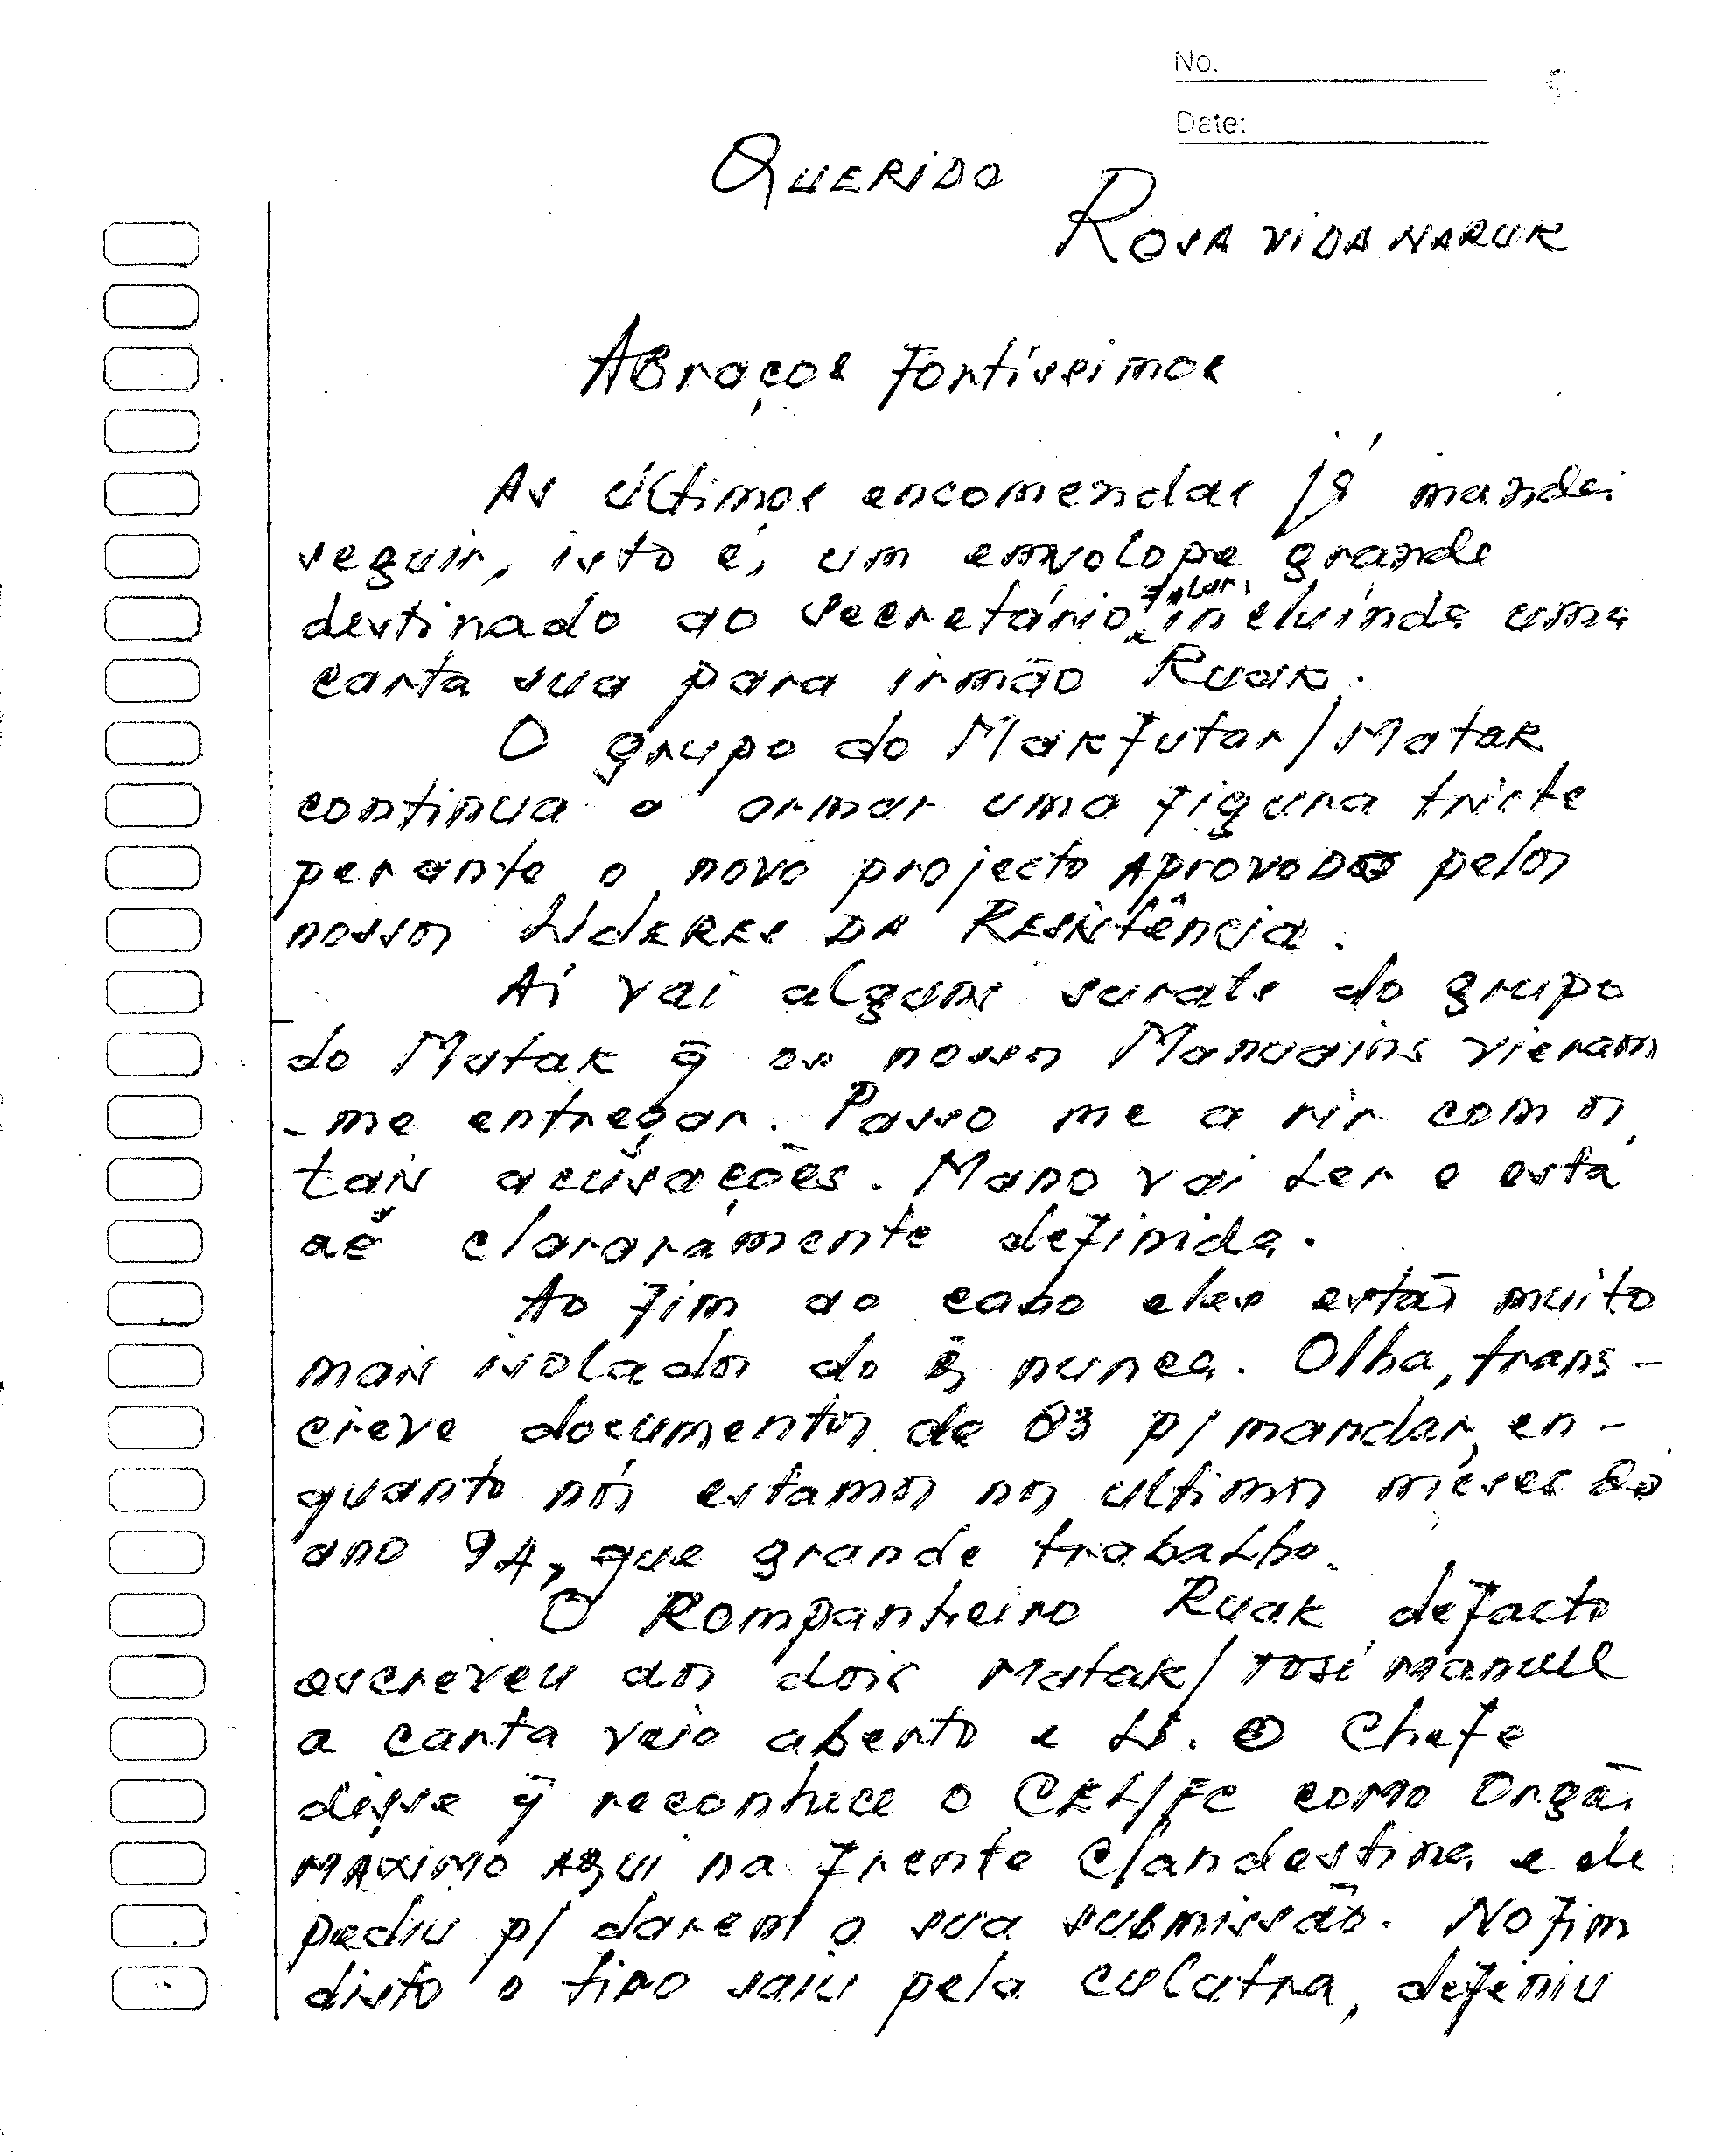 No.
Date:
QUERIDO
ROSA VIDA NARUK
ABraços fortíssimos
As últimas encomendas já mandei
seguir, isto é, um envolope grande
destinado ao secretário, incluínda uma
carta sua para irmão Ruak.
O grupo do Makfutar/Matak
continua a armar uma figura triste
perante o novo projecto Aprovado pelos
nossos Líderes da Resistência.
Aí vai alguns surats do grupo
do Matak q̃ os nossos Manuains vieram
-me entregar. Passo me a rir com os
tais acusações. Mano vai Ler e está
aé clararamente definida.
Ao fim ao cabo eles estão muito
mais isolados do q̃ nunca. Olha, trans-
creve documentos de 83 p/ mandar, en-
quanto nós estamos nos ultimos mêses do
ano 94, que grande trabaLho.
O Kompanheiro Ruak defacto
escreveu aos dois Matak/José Manuel
a carta veio aberto e Li. O Chefe
disse q̃ reconhece o CEL/FC como Orgão
Máximo Aqui na frente Clandestina e de
pediu p/ darem a sua submissão. No fim
disto o tiro saiu pela culatra, defeniu